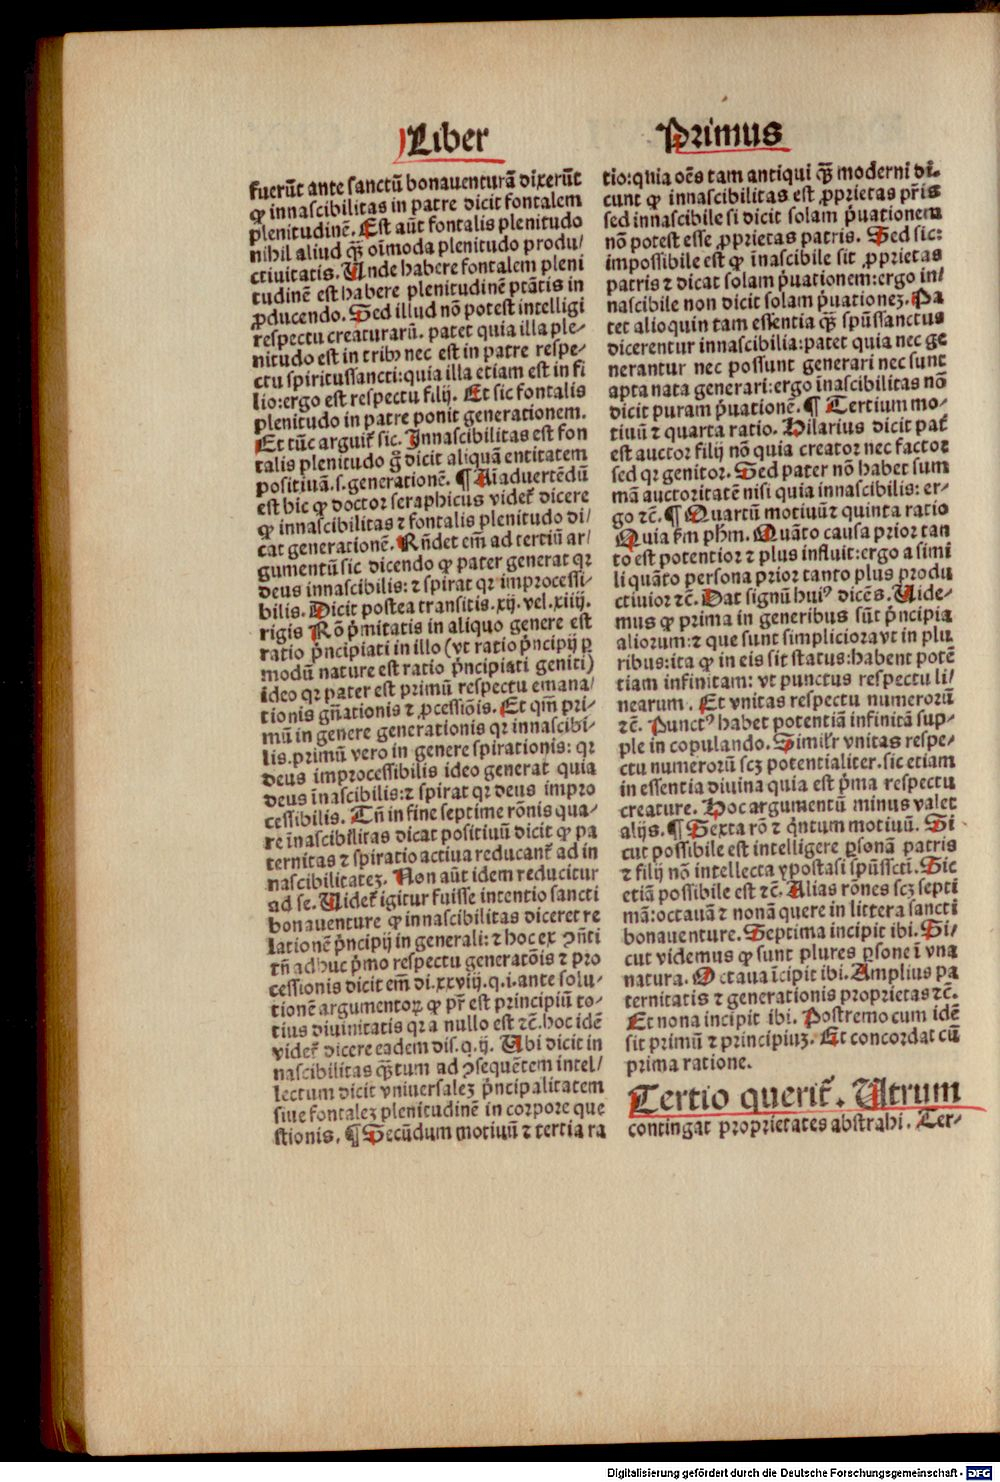 Liber Primus
fuerūt ante sanctū bonauenturā dixerūt
ꝙ innascibilitas in patre dicit fontalem
plenitudinē. Est aūt fontalis plenitudo
nihil aliud q̄ꝫ oīmoda plenitudo produ/
ctiuitatis. Unde habere fontalem pleni
tudinē est habere plenitudinē ptātis in
ꝓducendo. Sed illud nō potest intelligi
respectu creaturarū. patet quia illa ple-
nitudo est in tribꝰ nec est in patre respe-
ctu spiritussancti: quia illa etiam est in fi
lio: ergo est respectu filij. Et sic fontalis
plenitudo in patre ponit generationem.
Et tūc arguit᷑ sic. Innascibilitas est fon
talis plenitudo g̊ dicit aliquā entitatem
positiuā. s. generationē. ¶ Aīaduertēdū
est hic ꝙ doctor seraphicus videt᷑ dicere
ꝙ innascibilitas ⁊ fontalis plenitudo di/
cat generationē. Rn̄det em̄ ad tertiū ar/
gumentū sic dicendo ꝙ pater generat qꝛ
deus innascibilis: ⁊ spirat qꝛ improcessi-
bilis. Dicit postea transitis. xij. vel. xiiij.
rigis Rō p̄mitatis in aliquo genere est
ratio p̄ncipiati in illo (vt ratio p̄ncipij ꝑ
modū nature est ratio p̄ncipiati geniti)
ideo qꝛ pater est primū respectu emana/
tionis gn̄ationis ⁊ ꝓcessiōis. Et qm̄ pri-
mū in genere generationis qꝛ innascibi-
lis. primū vero in genere spirationis: qꝛ
deus improcessibilis ideo generat quia
deus īnascibilis: ⁊ spirat qꝛ deus impro
cessibilis. Tn̄ in fine septime rōnis qua-
re īnascibilitas dicat positiuū dicit ꝙ pa
ternitas ⁊ spiratio actiua reducant᷑ ad in
nascibilitateꝫ. Non aūt idem reducitur
ad se. Uidet᷑ igitur fuisse intentio sancti
bonauenture ꝙ innascibilitas diceret re
lationē p̄ncipij in generali: ⁊ hoc ex ꝯn̄ti
tn̄ adhuc p̄mo respectu generatōis ⁊ pro
cessionis dicit em̄ di. xxviij. q. i. ante solu-
tionē argumentoꝝ ꝙ pr̄ est principiū to-
tius diuinitatis qꝛ a nullo est ⁊c̄. hoc idē
videt᷑ dicere eadem dis. q. ij. Ubi dicit in
nascibilitas q̄ꝫtum ad ꝯsequētem intel/
lectum dicit vniuersaleꝫ p̄ncipalitatem
siue fontaleꝫ plenitudinē in corpore que
stionis. ¶ Secūdum motiuū ⁊ tertia ra
tio: quia oēs tam antiqui q̄ꝫ moderni di-
cunt ꝙ innascibilitas est ꝓprietas pr̄is
sed innascibile si dicit solam p̄uationem
nō potest esse ꝓprietas patris. Sed sic:
impossibile est ꝙ īnascibile sit ꝓprietas
patris ⁊ dicat solam p̄uationem: ergo in/
nascibile non dicit solam p̄uationeꝫ. Pa
tet alioquin tam essentia q̄ꝫ spūssanctus
dicerentur innascibilia: patet quia nec ge
nerantur nec possunt generari nec sunt
apta nata generari: ergo īnascibilitas nō
dicit puram p̄uationē. ¶ Tertium mo-
tiuū ⁊ quarta ratio. Hilarius dicit pat᷑
est auctor filij nō quia creator nec factor
sed qꝛ genitor. Sed pater nō habet sum
mā auctoritatē nisi quia innascibilis: er-
go ⁊c̄. ¶ Quartū motiuū ⁊ quinta ratio
Quia ẜm ph̄m. Quāto causa prior tan
to est potentior ⁊ plus influit: ergo a simi
li quāto persona prior tanto plus produ
ctiuior ⁊c̄. Dat signū huiꝰ dicēs. Uide-
mus ꝙ prima in generibus sūt p̄ncipia
aliorum: ⁊ que sunt simpliciora vt in plu
ribus: ita ꝙ in eis sit status: habent potē
tiam infinitam: vt punctus respectu li/
nearum. Et vnitas respectu numerorū
⁊c̄. Punctꝰ habet potentiā infinitā sup-
ple in copulando. Similr̄ vnitas respe-
ctu numerorū scꝫ potentialiter. sic etiam
in essentia diuina quia est p̄ma respectu
creature. Hoc argumentū minus valet
alijs. ¶ Sexta rō ⁊ q̄ntum motiuū. Si
cut possibile est intelligere ꝑsonā patris
⁊ filij nō intellecta ypostasi spūsscti. Sic
etiā possibile est ⁊c̄. Alias rōnes scꝫ septi
mā: octauā ⁊ nonā quere in littera sancti
bonauenture. Septima incipit ibi. Si-
cut videmus ꝙ sunt plures ꝑsone ī vna
natura. Octaua īcipit ibi. Amplius pa
ternitatis ⁊ generationis proprietas ⁊c̄.
Et nona incipit ibi. Postremo cum idē
sit primū ⁊ principiuꝫ. Et concordat cū
prima ratione.
Tertio querit᷑. Utrum
contingat proprietates abstrahi. Ter-
Digitalisierung gefördert durch die Deutsche Forschungsgemeinschaft - DFG